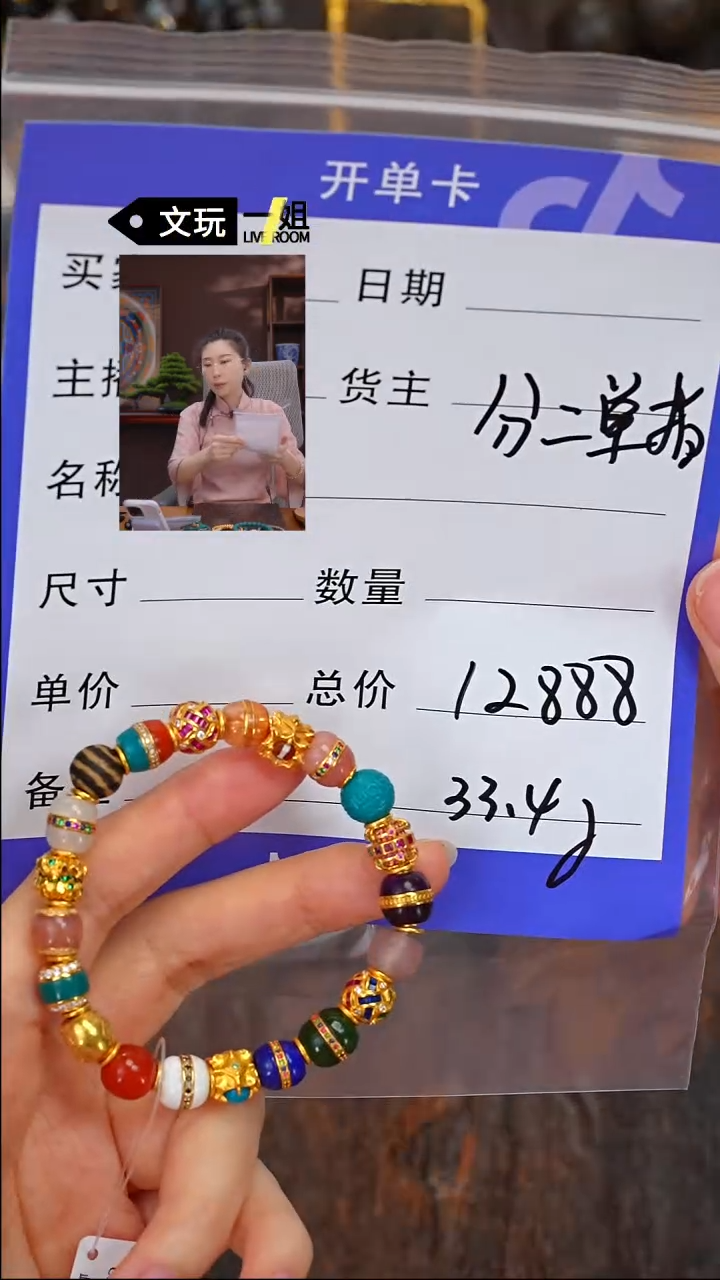 开单卡
文玩一姐
LIVE ROOM
买 日期
主播 货主 分二单拍
名称
尺寸 数量
单价 总价 12888
备 33.4g